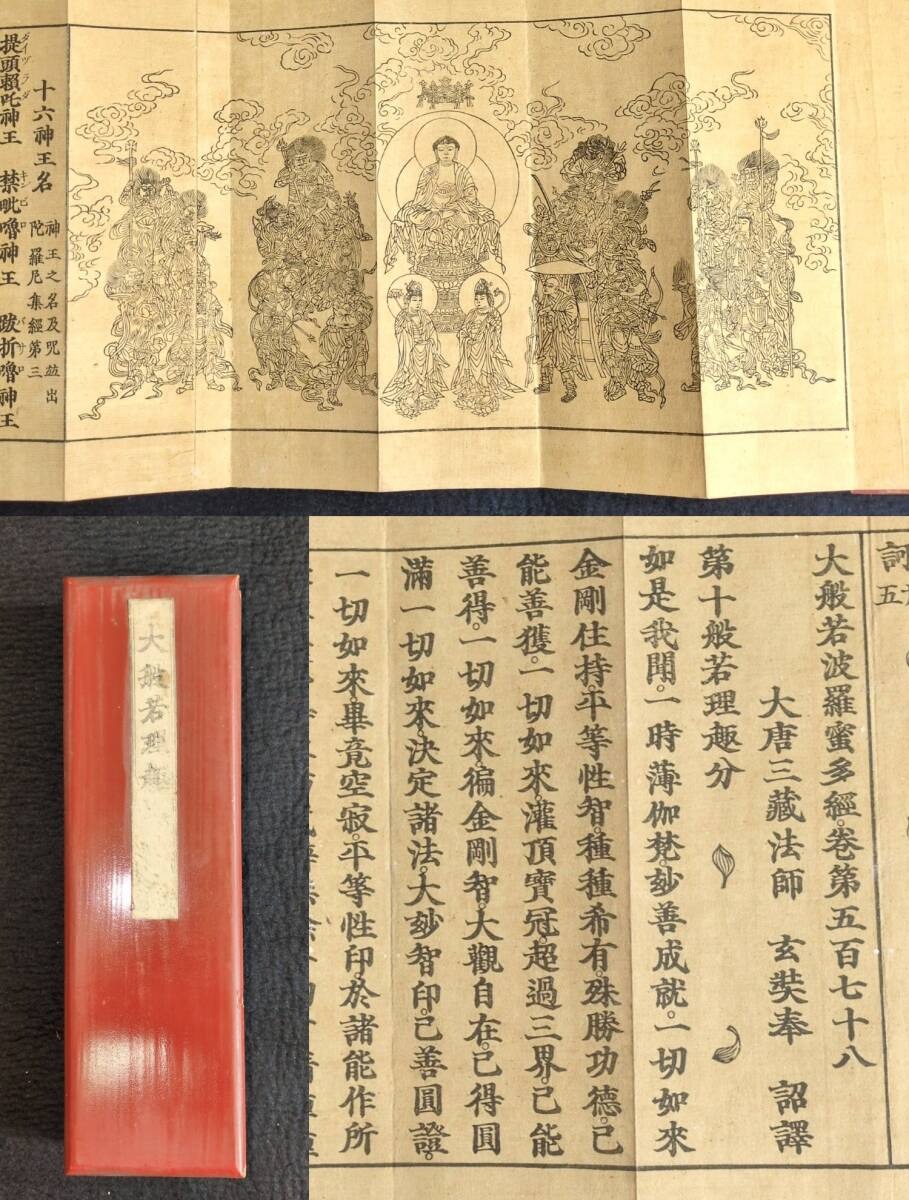 十六神王名
神王之名及咒並出
陀羅尼集經第三
提頭賴吒神王 禁毗嚕神王 跋折嚕神王
ダイヅラダ キンビロ バサロ
大般若理趣
大般若波羅蜜多經。卷第五百七十八
大唐三藏法師 玄奘奉 詔譯
第十般若理趣分
如是我聞。一時薄伽梵。玅善成就。一切如來
金剛住持。平等性智。種種希有。殊勝功德。已
能善獲。一切如來。灌頂寶冠。超過三界。已能
善得。一切如來。徧金剛智。大觀自在。已得圓
滿一切如來。決定諸法。大玅智印。已善圓證。
一切如來。畢竟空寂。平等性印。於諸能作所